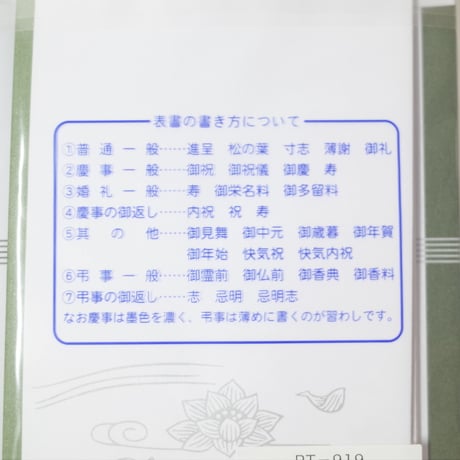 表書の書き方について
①普通一般……進呈 松の葉 寸志 薄謝 御礼
②慶事一般……御祝 御祝儀 御慶 寿
③婚礼一般……寿 御栄名料 御多留料
④慶事の御返し……内祝 祝 寿
⑤其の他……御見舞 御中元 御歳暮 御年賀
御年始 快気祝 快気内祝
⑥弔事一般……御霊前 御仏前 御香典 御香料
⑦弔事の御返し……志 忌明 忌明志
なお慶事は墨色を濃く、弔事は薄めに書くのが習わしです。